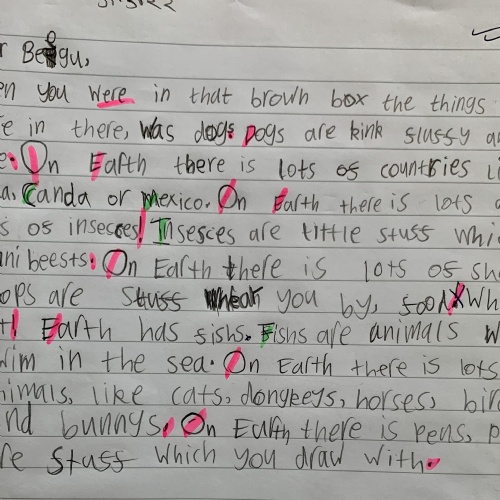 r Beegu,
en you were in that brown box the things
e in there, was dogs. Dogs are kink slussy a
e. On Earth there is lots os countries li
a, Canda or Mexico. On Earth there is lots o
s os insecces! Insesces are tittle stuss whi
ani beests. On Earth there is lots os sh
ops are stuss you by, Wh
t! Earth has sishs. Fishs are animals w
wim in the sea. On Earth there is lots
nimals, like cats, dongkeys, horses, bir
nd bunnys. On Earth there is pens, p
re stuss which you draw with.